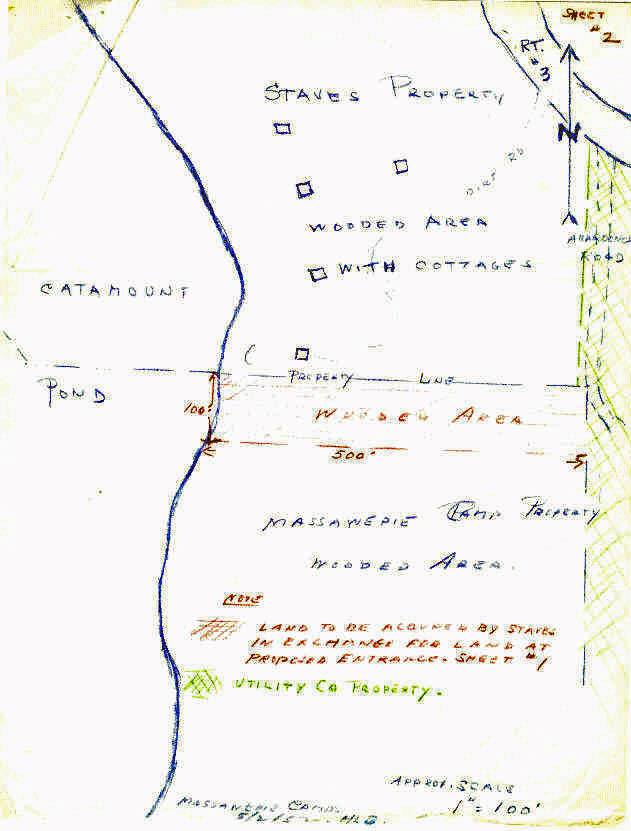 SHEET
#2
RT.
#3
STAVES PROPERTY
N
DIRT RD
WOODED AREA
WITH COTTAGES
ABANDONED
ROAD
CATAMOUNT
POND
PROPERTY LINE
100'
WOODED AREA
500'
MASSAWEPIE CAMP PROPERTY
WOODED AREA.
NOTE
LAND TO BE ACQUIRED BY STAVES
IN EXCHANGE FOR LAND AT
PROPOSED ENTRANCE - SHEET #1
UTILITY CO PROPERTY.
APPROX. SCALE
1" = 100'
MASSAWEPIE CAMP